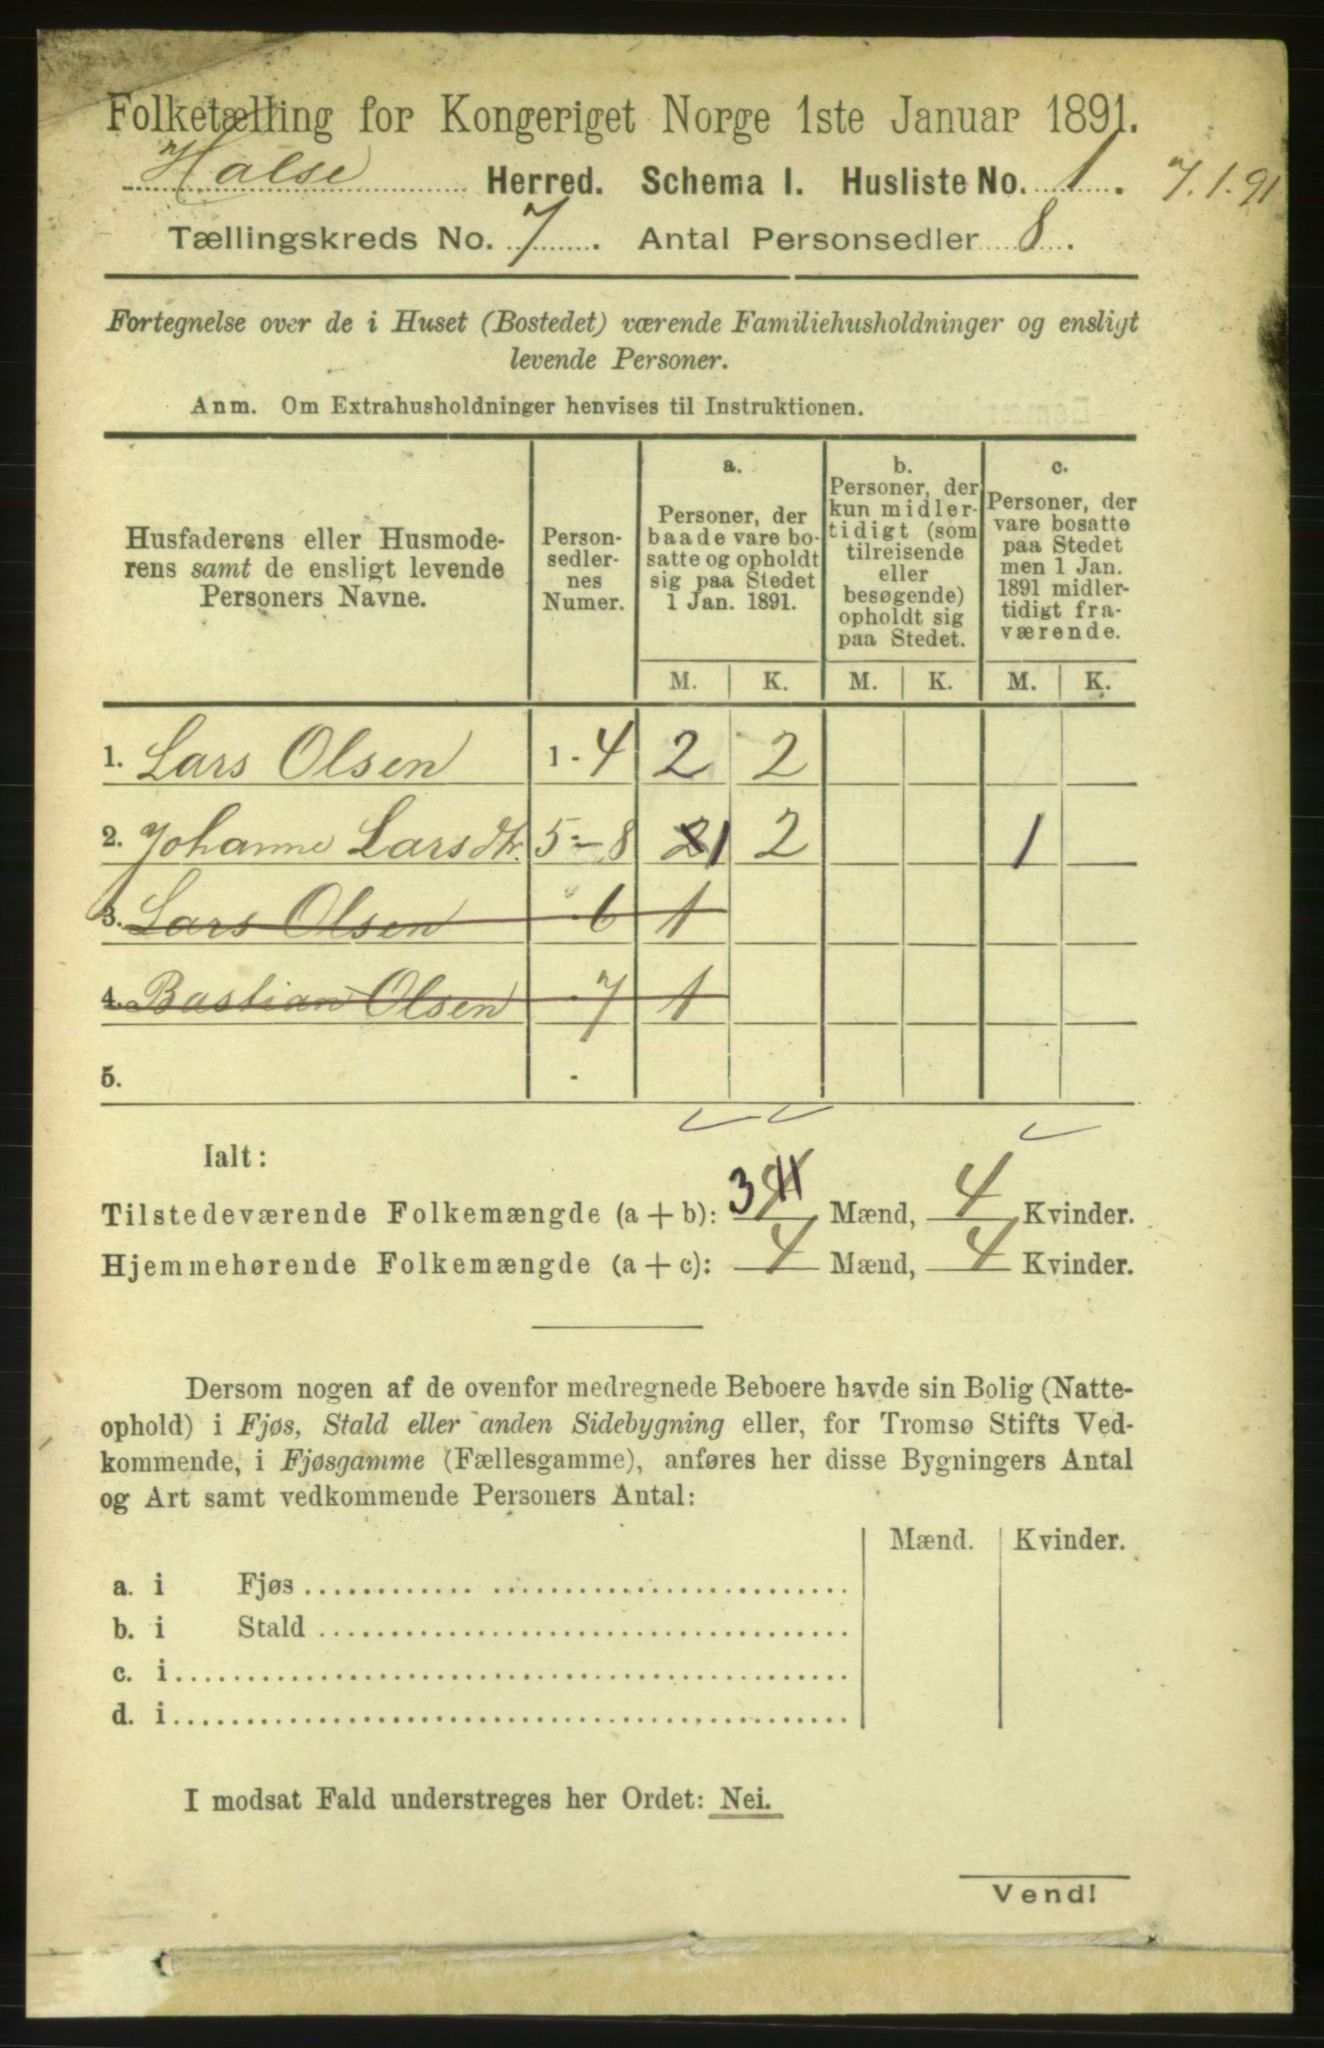 Folketælling for Kongeriget Norge 1ste Januar 1891.
Halse Herred. Schema I. Husliste No. 1. 7.1.91
Tællingskreds No. 7. Antal Personsedler 8.
Fortegnelse over de i Huset (Bostedet) værende Familiehusholdninger og ensligt
levende Personer.
Anm. Om Extrahusholdninger henvises til Instruktionen.
Husfaderens eller Husmode-
rens samt de ensligt levende
Personers Navne.
Person-
sedler-
nes
Numer.
a.
Personer, der
baade vare bo-
satte og opholdt
sig paa Stedet
1 Jan. 1891.
b.
Personer, der
kun midler-
tidigt (som
tilreisende
eller
besøgende)
opholdt sig
paa Stedet.
c.
Personer, der
vare bosatte
paa Stedet
men 1 Jan.
1891 midler-
tidigt fra-
værende.
M. K. M. K. M. K.
1. Lars Olsen 1-4 2 2
2. Johanne Larsdtr. 5-8 2 1 2 1
3. Lars Olsen 6 1
4. Bastian Olsen 7 1
5.
Ialt:
Tilstedeværende Folkemængde (a + b): 3 4 Mænd, 4 Kvinder.
Hjemmehørende Folkemængde (a + c): 4 Mænd, 4 Kvinder.
Dersom nogen af de ovenfor medregnede Beboere havde sin Bolig (Natte-
ophold) i Fjøs, Stald eller anden Sidebygning eller, for Tromsø Stifts Ved-
kommende, i Fjøsgamme (Fællesgamme), anføres her disse Bygningers Antal
og Art samt vedkommende Personers Antal:
Mænd. Kvinder.
a. i Fjøs
b. i Stald
c. i
d. i
I modsat Fald understreges her Ordet: Nei.
Vend!